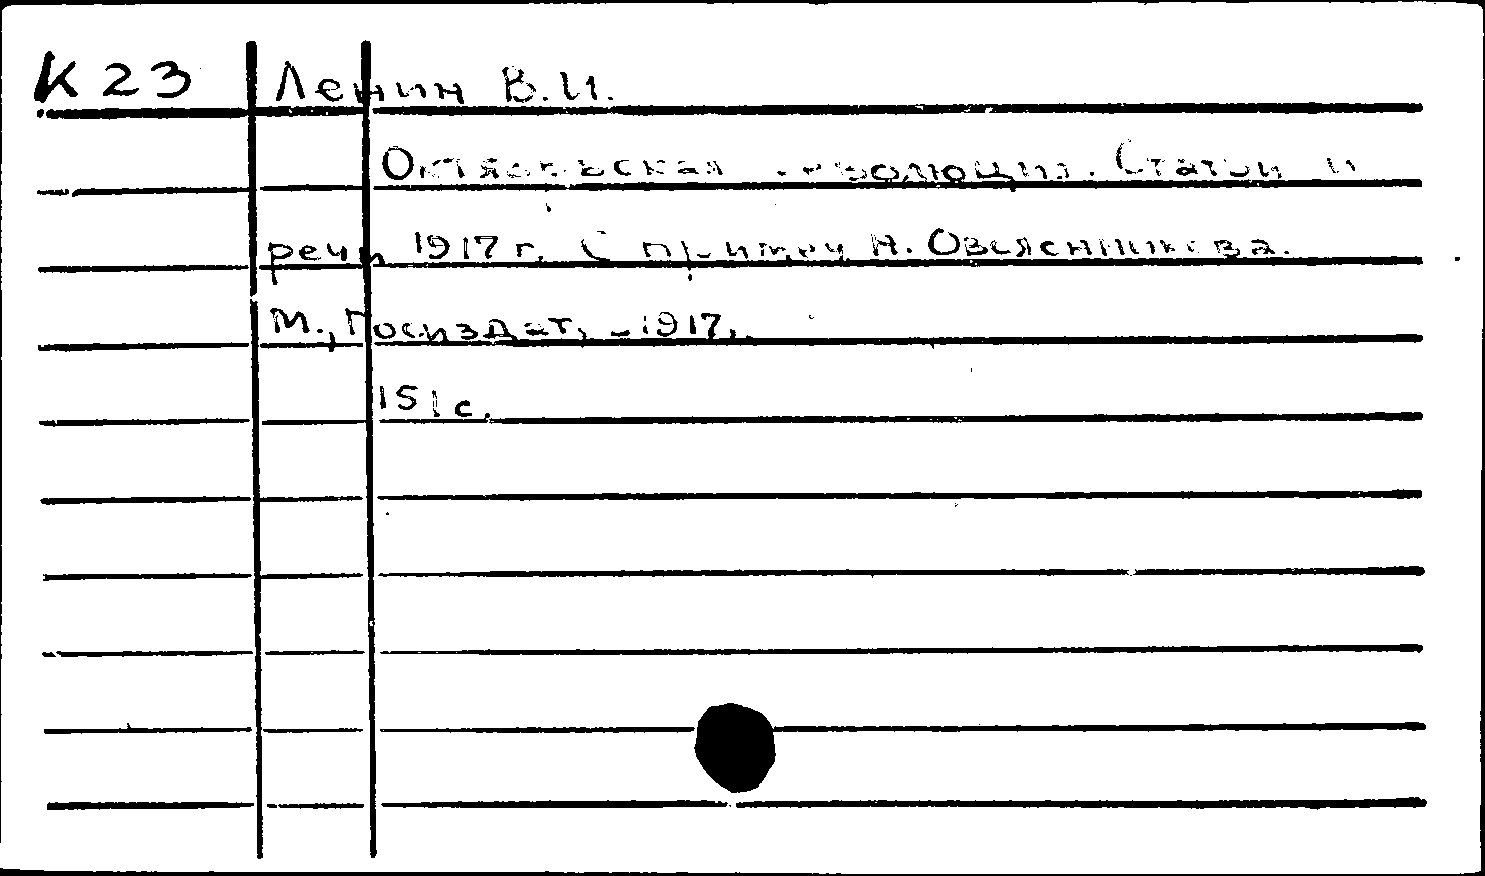 К 23 Ленин В.И.
Октябрьская революция. Статьи и
речи 1917 г. С примеч. Н. Овсянникова.
М., Госиздат, - 1917.
151 с.